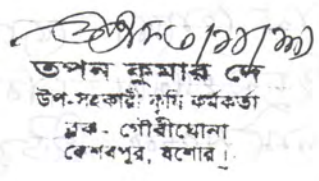 তপন কুমার দে
উপ-সহকারী কৃষি কর্মকর্তা
ব্লক - গৌরীঘোনা
কেশবপুর, যশোর।